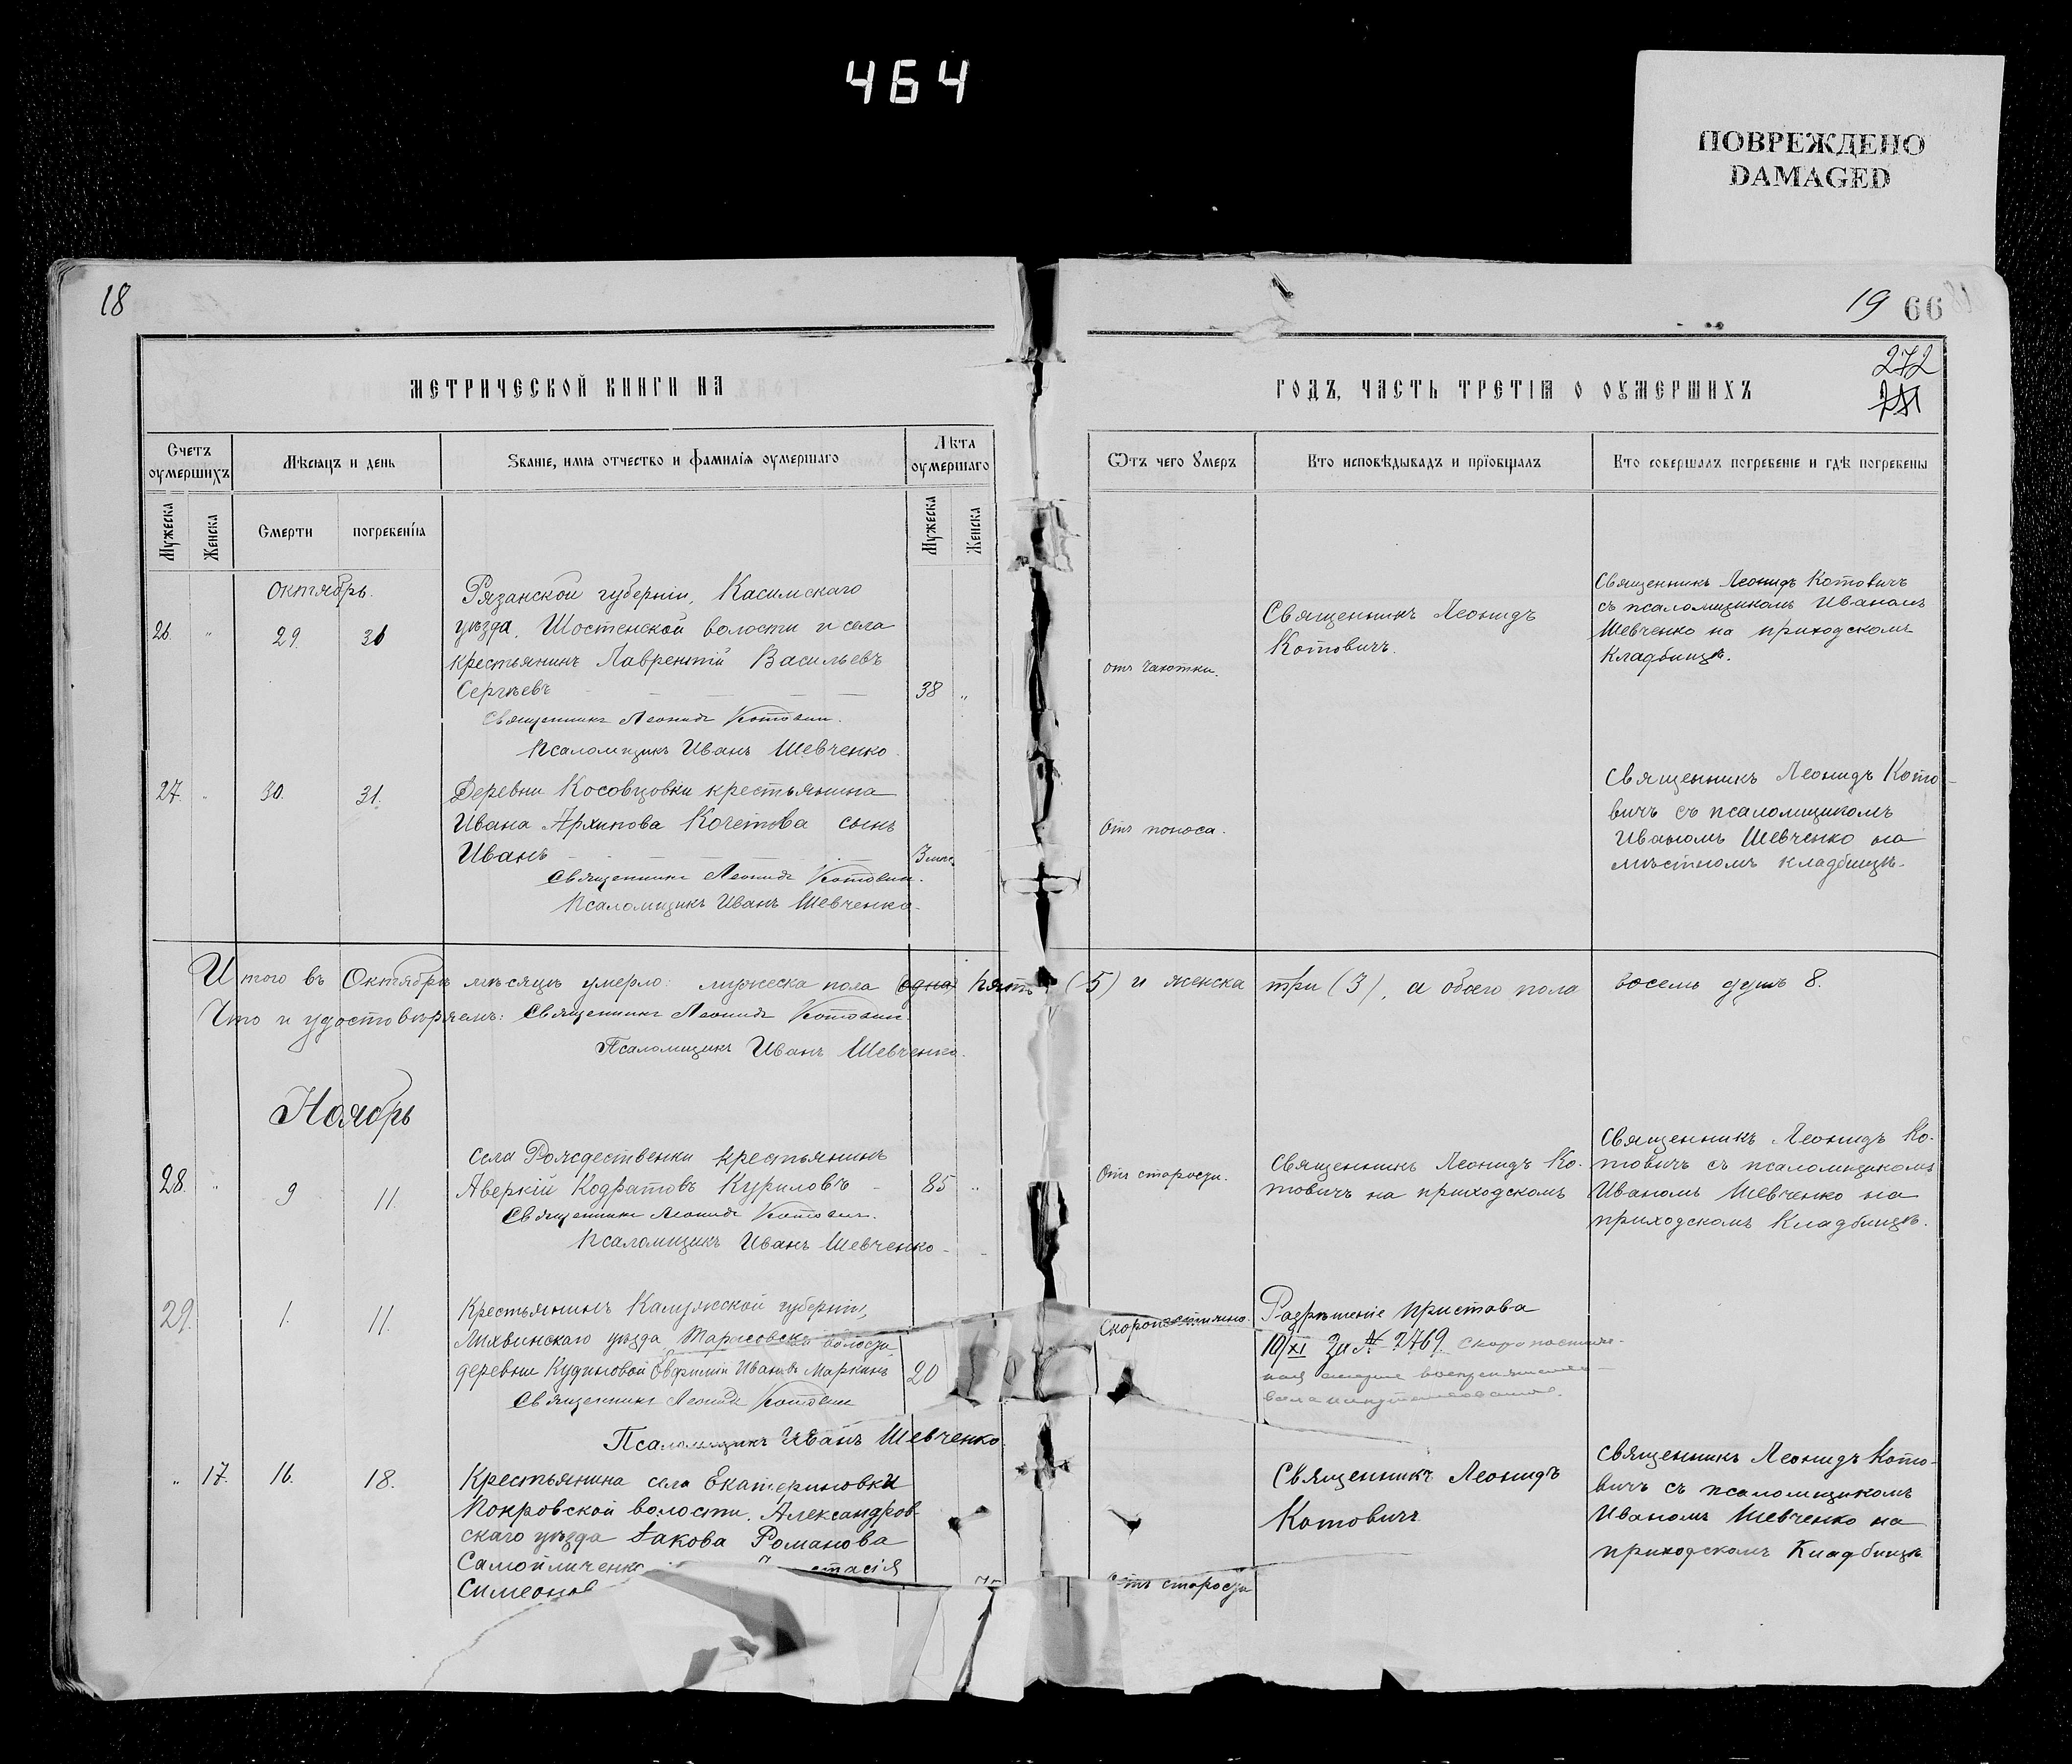 464
ПОВРЕЖДЕНО
DAMAGED
18
19 66
272
МЕТРИЧЕСКОЙ КНИГИ НА
ГОДЪ, ЧАСТЬ ТРЕТІЯ О ОУМЕРШИХЪ
Счетъ оумершихъ
Мѣсяцъ и день
Званіе, имя отчество и фамилія оумершаго
Лѣта оумершаго
Ѿтъ чего Умеръ
Кто исповѣдывадъ и пріобщалъ
Кто совершалъ погребеніе и гдѣ погребены
Мужеска
Женска
Смерти
погребенія
Мужеска
Женска
Октябрь.
26. " 29. 31
Рязанской губерніи, Касимскаго
уѣзда, Шостенской волости и села
крестьянинъ Лаврентій Васильевъ
Сергѣевъ — — — —
38 "
Священникъ Леонидъ Котович.
Псаломщикъ Иванъ Шевченко
отъ чахотки.
Священникъ Леонидъ
Котовичъ.
Священникъ Леонидъ Котовичъ
съ псаломщикомъ Иваномъ
Шевченко на приходскомъ
Кладбищѣ.
27. " 30. 31.
Деревни Косовцовки крестьянина
Ивана Архипова Кочетова сынъ
Иванъ — — — —
3 мѣс.
Священникъ Леонидъ Котович.
Псаломщикъ Иванъ Шевченко
Отъ поноса.
Священникъ Леонидъ Кото-
вичъ съ псаломщикомъ
Иваномъ Шевченко на
мѣстномъ кладбищѣ.
Итого въ Октябрѣ мѣсяцѣ умерло: мужеска пола (одна) пять (5) и женска три (3), а обоего пола восемь душъ 8.
Что и удостовѣряемъ: Священникъ Леонидъ Котович.
Псаломщикъ Иванъ Шевченко.
Ноябрь
28. " 9 11.
Села Рождественки крестьянинъ
Аверкій Кодратовъ Куриловъ -
85 "
Священникъ Леонидъ Котович.
Псаломщикъ Иванъ Шевченко-
Отъ старости.
Священникъ Леонидъ Ко-
товичъ на приходскомъ
Священникъ Леонидъ Ко-
товичъ съ псаломщикомъ
Иваномъ Шевченко на
приходскомъ Кладбищѣ.
29. 1. 11.
Крестьянинъ Калужской губерніи,
Лихвинскаго уѣзда волости
деревни Кудиновой Евфимій Ивановъ Маркинъ
20
Священникъ Леонидъ Котович
Псаломщикъ Иванъ Шевченко.
Скоропостижно.
Разрѣшеніе Пристава
10/XI За № 2769. Скоропостиж-
" 17. 16. 18.
Крестьянина села Екатериновки
Покровской волости, Александров-
скаго уѣзда Іакова Романова
Самойличенко стасія
Симеонов
Отъ старости
Священникъ Леонидъ
Котовичъ
Священникъ Леонидъ Кото-
вичъ съ псаломщикомъ
Иваномъ Шевченко на
приходскомъ Кладбищѣ